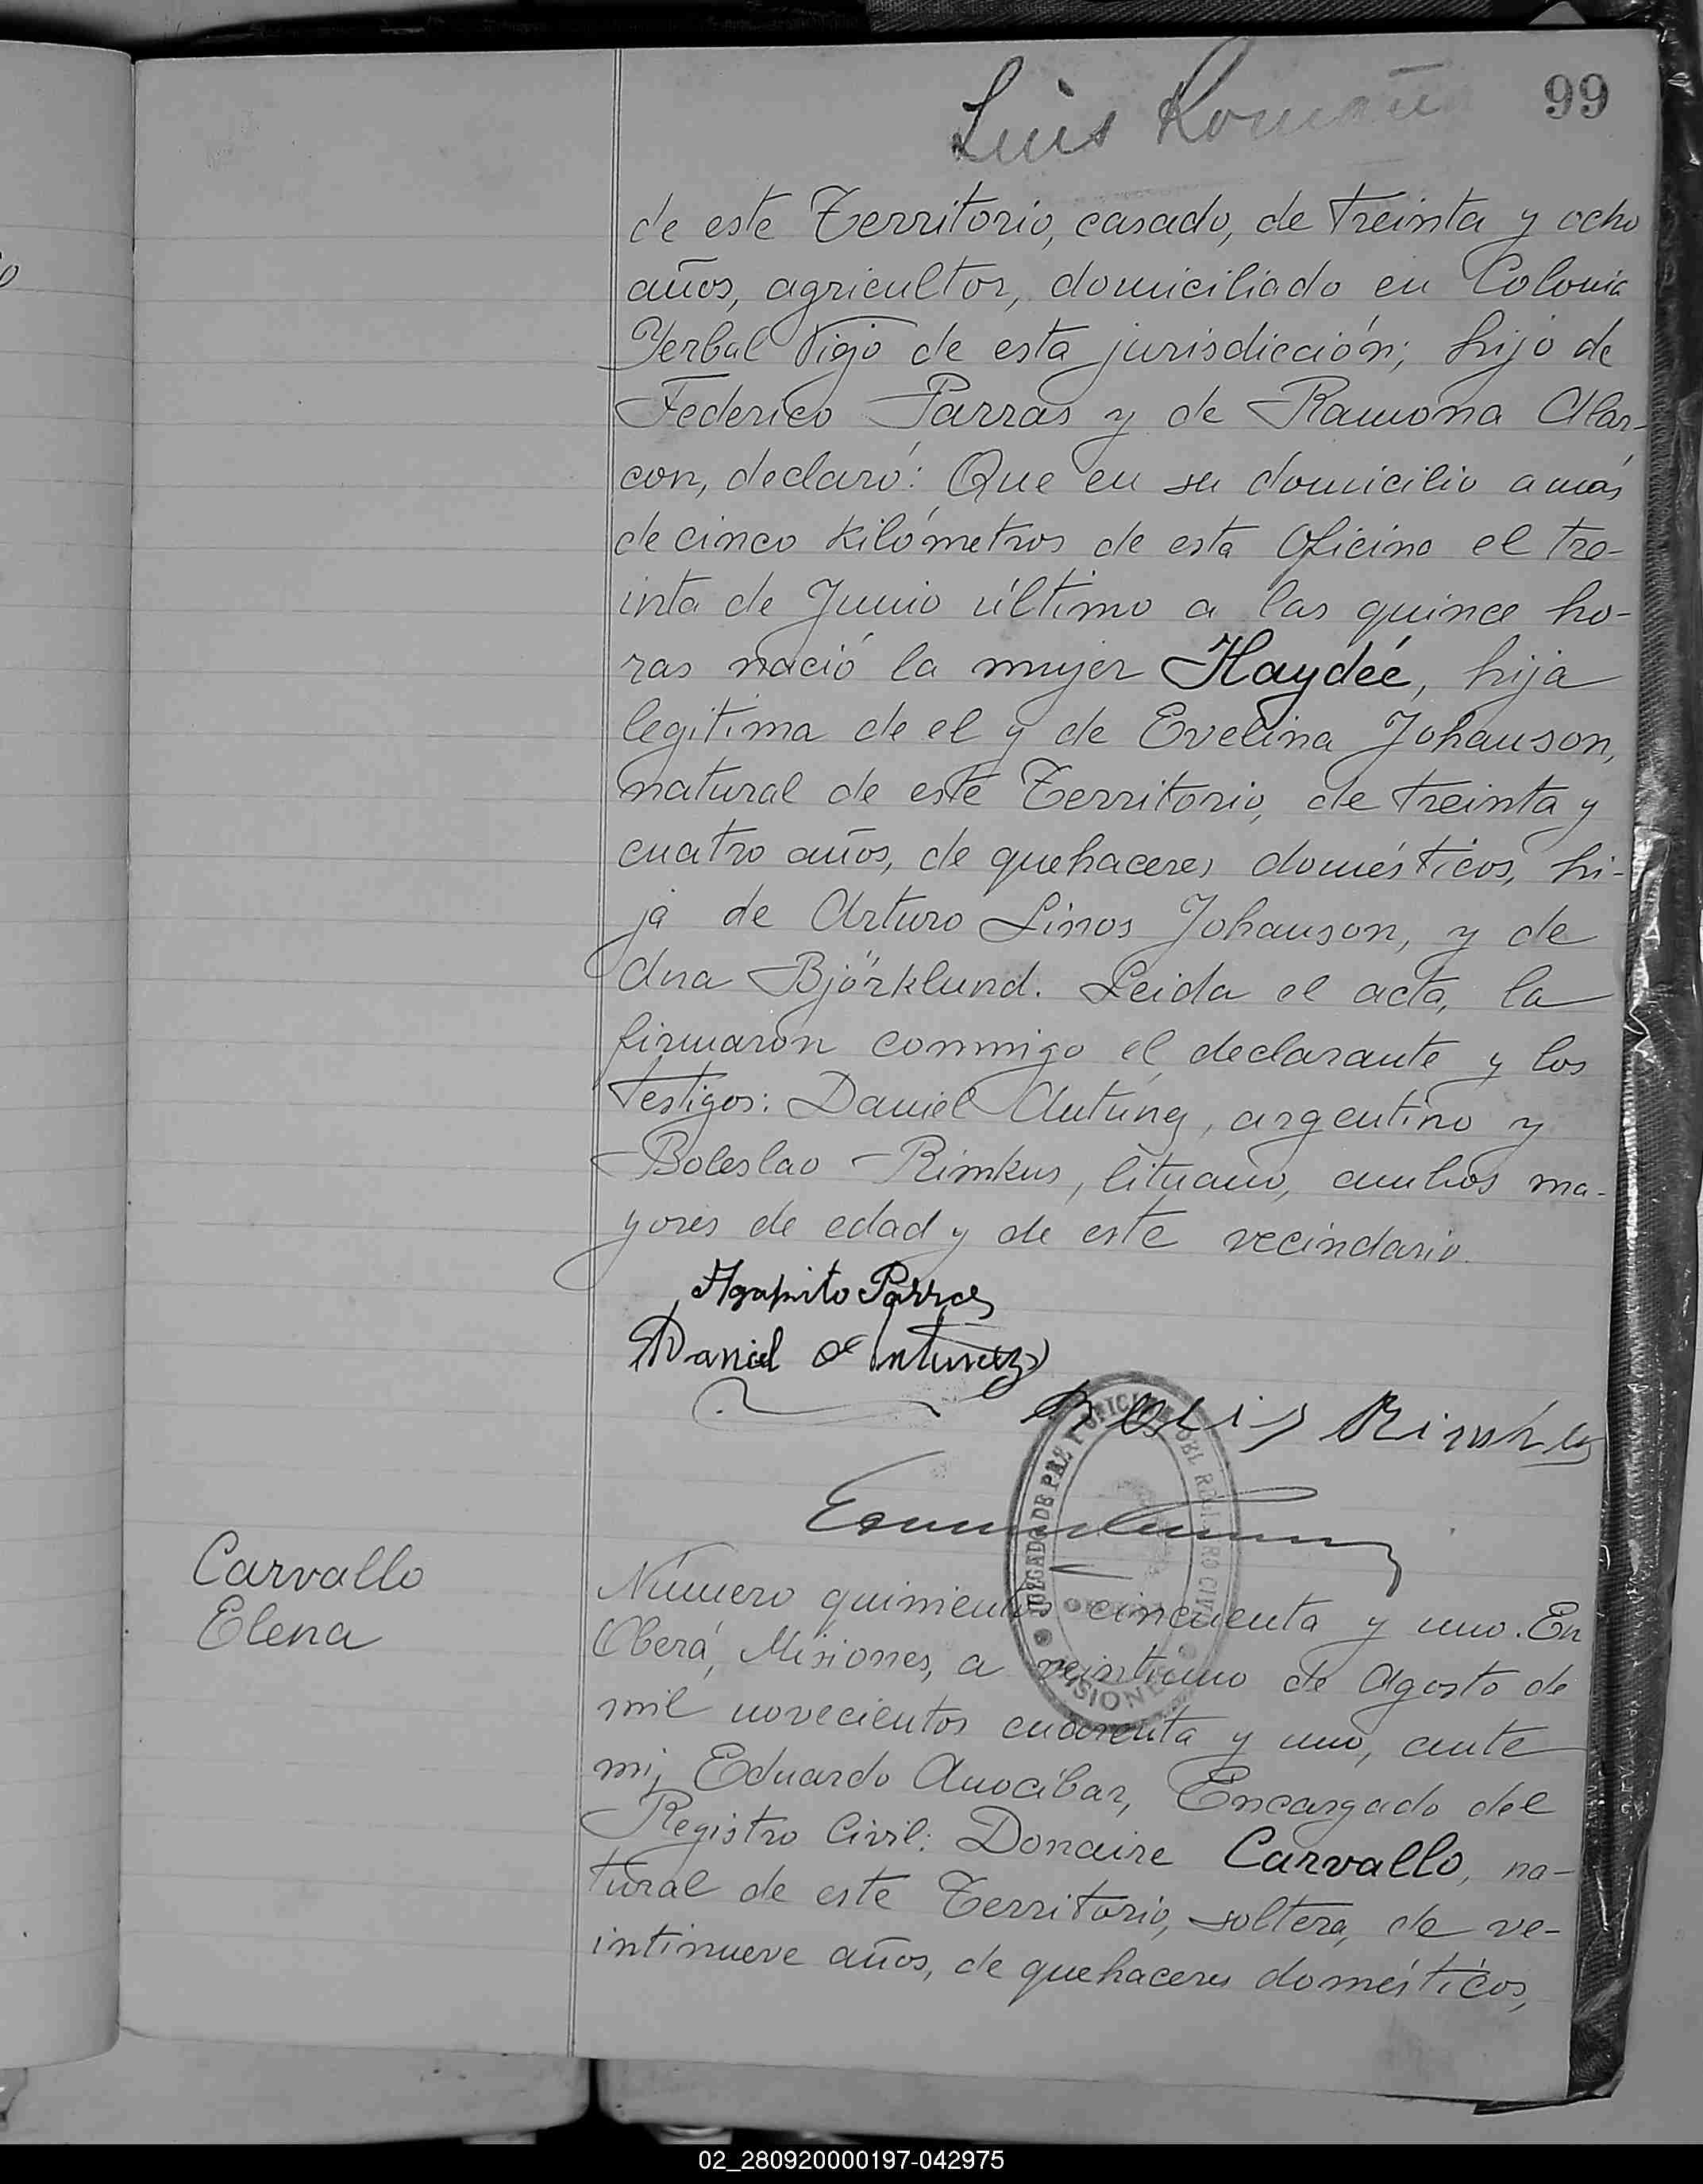 99
Luis
de este Territorio, casado, de treinta y ocho
años, agricultor, domiciliado en Colonia
Yerbal Viejo de esta jurisdicción; hijo de
Federico Parras y de Ramona Alar-
con, declaró: Que en su domicilio a más
de cinco kilómetros de esta Oficina el tre-
inta de Junio último a las quince ho-
ras nació la mujer Haydée, hija
legitima de el y de Evelina Johanson,
natural de este Territorio, de treinta y
cuatro años, de quehaceres domésticos, hi-
ja de Arturo Linos Johanson, y de
Ana Björklund. Leida el acta, la
firmaron conmigo el declarante y los
testigos: Daniel Antúnez, argentino y
Boleslao Rimkus, lituano, ambos ma-
yores de edad y de este vecindario.
Agapito Parras
Daniel Antunez
Bolis Rimkus
JUZGADO DE PAZ Y OFICINA DEL REGISTRO CIVIL
MISIONES
Carvallo
Elena
Número quinientos cincuenta y uno. En
Oberá, Misiones, a veintiuno de Agosto de
mil novecientos cuarenta y uno, ante
mi, Eduardo Anocibar, Encargado del
Registro Civil: Donaire Carvallo, na-
tural de este Territorio, soltera, de ve-
intinueve años, de quehaceres domésticos,
02_280920000197-042975